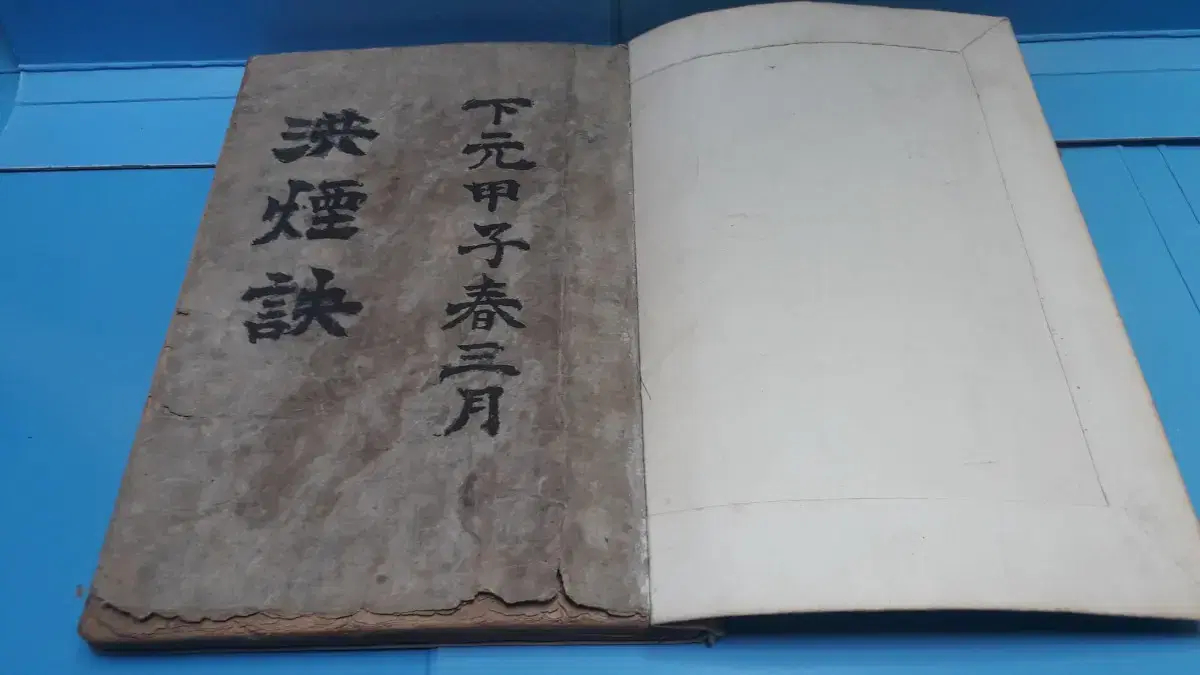 下元甲子春三月
洪煙訣